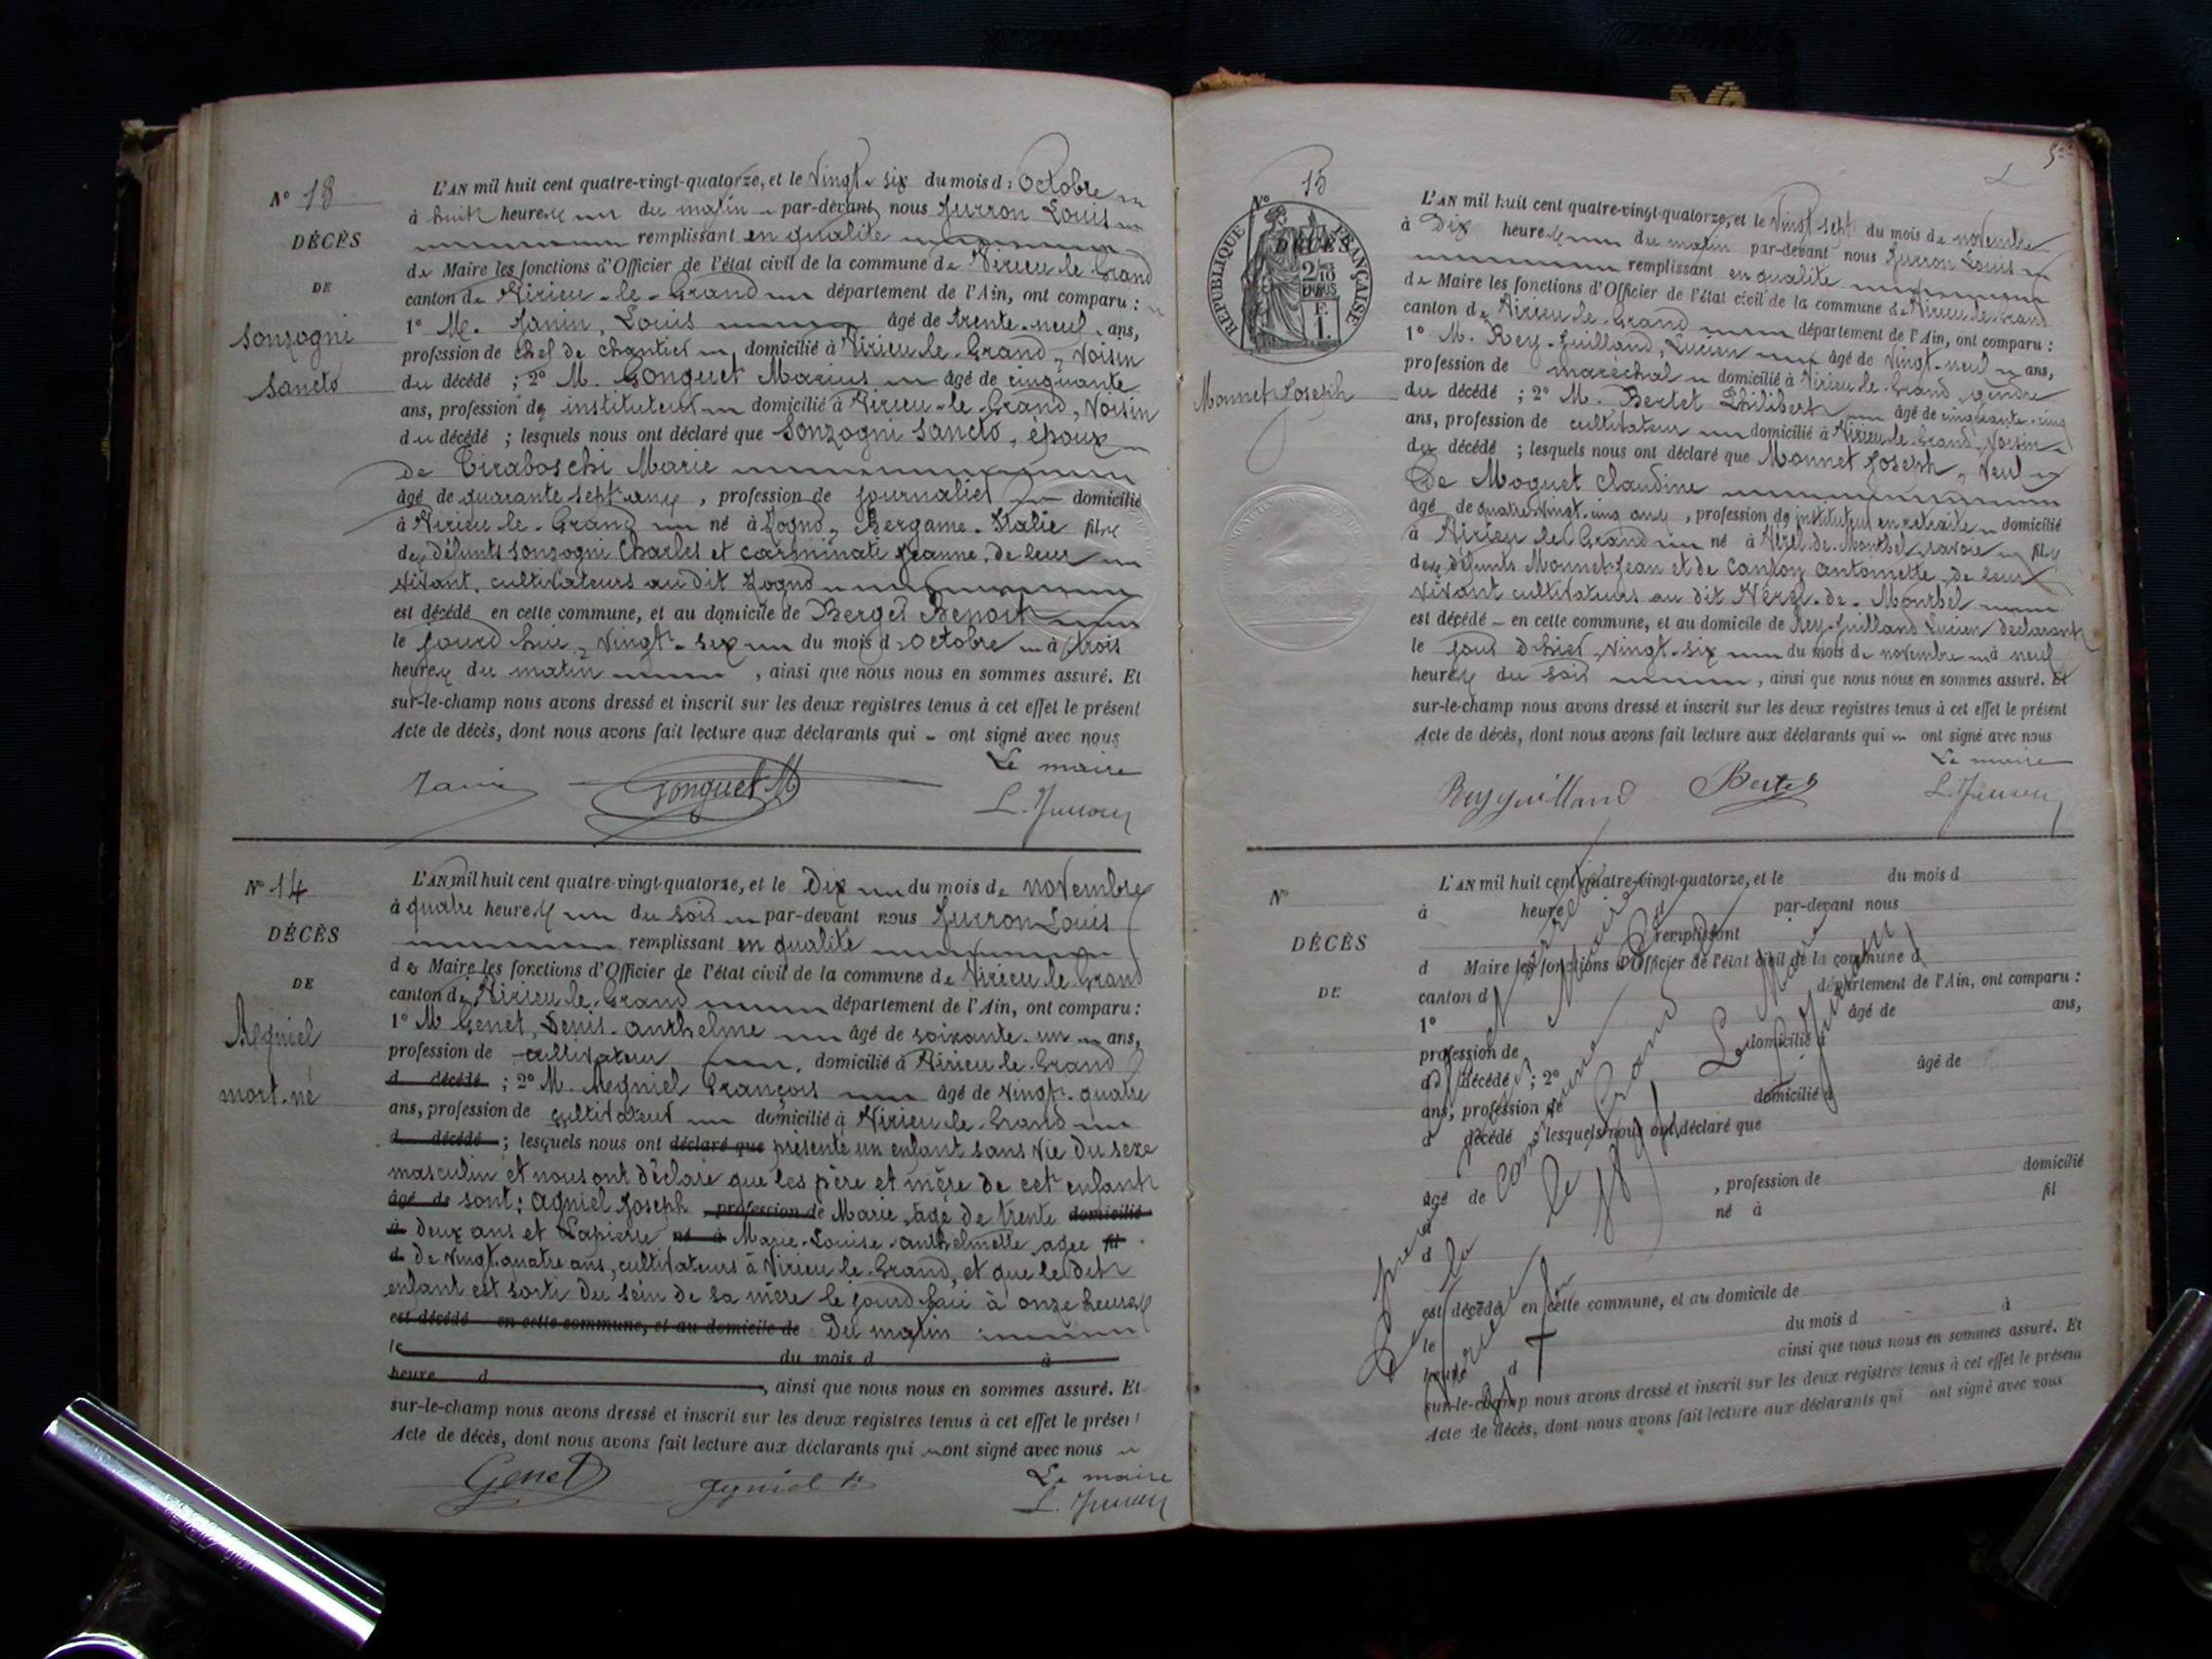 N° 13
DÉCÈS
DE
Sonzogni
Sancto
L'AN mil huit cent quatre-vingt-quatorze, et le Vingt-six du mois d' Octobre
à huit heures du matin par-devant nous Jurron Louis
remplissant en qualité
de Maire les fonctions d'Officier de l'état civil de la commune de Virieu-le-Grand
canton de Virieu-le-Grand département de l'Ain, ont comparu :
1° M. Janin, Louis âgé de trente-neuf ans,
profession de chef de chantier domicilié à Virieu-le-Grand, Voisin
du décédé ; 2° M. Gonguet Marius âgé de cinquante
ans, profession de instituteur domicilié à Virieu-le-Grand, Voisin
du décédé ; lesquels nous ont déclaré que Sonzogni Sancto, époux
de Tiraboschi Marie
âgé de quarante sept ans, profession de journalier domicilié
à Virieu-le-Grand né à Zogno, Bergame-Italie fils
des défunts Sonzogni Charles et Carminati Jeanne, de leur
vivant, cultivateurs au dit Zogno
est décédé en cette commune, et au domicile de Berger Benoit
le jourd'hui, vingt-six du mois d'octobre à trois
heures du matin, ainsi que nous nous en sommes assuré. Et
sur-le-champ nous avons dressé et inscrit sur les deux registres tenus à cet effet le présent
Acte de décès, dont nous avons fait lecture aux déclarants qui ont signé avec nous
Le maire
Janin Gonguet M L. Jurron
N° 14
DÉCÈS
DE
Agniel
mort-né
L'AN mil huit cent quatre-vingt-quatorze, et le Dix du mois de novembre
à quatre heures du soir par-devant nous Jurron Louis
remplissant en qualité
de Maire les fonctions d'Officier de l'état civil de la commune de Virieu-le-Grand
canton de Virieu-le-Grand département de l'Ain, ont comparu :
1° M Genet, Denis-anthelme âgé de soixante-un ans,
profession de cultivateur, domicilié à Virieu-le-Grand
d décédé ; 2° M. Agniel François âgé de vingt-quatre
ans, profession de cultivateur domicilié à Virieu-le-Grand
d décédé ; lesquels nous ont déclaré que présenté un enfant sans vie du sexe
masculin et nous ont déclaré que les père et mère de cet enfant
âgé de sont: Agniel Joseph, profession de Marie, âgé de trente domicilié
à deux ans et Lapierre né à Marie-Louise-anthelmette agée fil
d de vingt-quatre ans, cultivateurs à Virieu-le-Grand, et que ledit
enfant est sorti du sein de sa mère le jourd'hui à onze heures
est décédé en cette commune, et au domicile de Du matin
le du mois d à
heure d , ainsi que nous nous en sommes assuré. Et
sur-le-champ nous avons dressé et inscrit sur les deux registres tenus à cet effet le présent
Acte de décès, dont nous avons fait lecture aux déclarants qui ont signé avec nous
Le maire
Genet L. Jurron
N° 15
RÉPUBLIQUE FRANÇAISE
DÉCÈS
Monnet Joseph
L'AN mil huit cent quatre-vingt-quatorze, et le Vingt sept du mois de novembre
à Dix heures du matin par-devant nous Jurron Louis
remplissant en qualité
de Maire les fonctions d'Officier de l'état civil de la commune de Virieu-le-Grand
canton de Virieu-le-Grand département de l'Ain, ont comparu :
1° M. Rey-Juilland, Lucien âgé de vingt-neuf ans,
profession de maréchal domicilié à Virieu-le-Grand, gendre
du décédé ; 2° M. Bertet Philibert âgé de cinquante-cinq
ans, profession de cultivateur domicilié à Virieu-le-Grand, Voisin
du décédé ; lesquels nous ont déclaré que Monnet Joseph, Veuf
De Moquet Claudine
âgé de quatre-vingt-cinq ans, profession de instituteur en retraite domicilié
à Virieu-le-Grand né à Savoie fils
des défunts Monnet Jean et de Antoinette, de leur
vivant cultivateurs au dit
est décédé en cette commune, et au domicile de Rey-Juilland Lucien déclarant
le jour d'hier, vingt-six du mois de novembre à neuf
heures du soir, ainsi que nous nous en sommes assuré. Et
sur-le-champ nous avons dressé et inscrit sur les deux registres tenus à cet effet le présent
Acte de décès, dont nous avons fait lecture aux déclarants qui ont signé avec nous
Le maire
Reyjuilland Bertet L. Jurron
N°
DÉCÈS
DE
L'AN mil huit cent quatre-vingt-quatorze, et le du mois d
à heure par-devant nous
remplissant
d Maire les fonctions d'Officier de l'état civil de la commune d
canton d département de l'Ain, ont comparu :
1° âgé de ans,
profession de domicilié à
d décédé ; 2° âgé de
ans, profession de domicilié à
d décédé ; lesquels nous ont déclaré que
âgé de , profession de domicilié
à né à fil
d
est décédé en cette commune, et au domicile de
le du mois d à
heure d ainsi que nous nous en sommes assuré. Et
sur-le-champ nous avons dressé et inscrit sur les deux registres tenus à cet effet le présent
Acte de décès, dont nous avons fait lecture aux déclarants qui ont signé avec nous
Le Maire